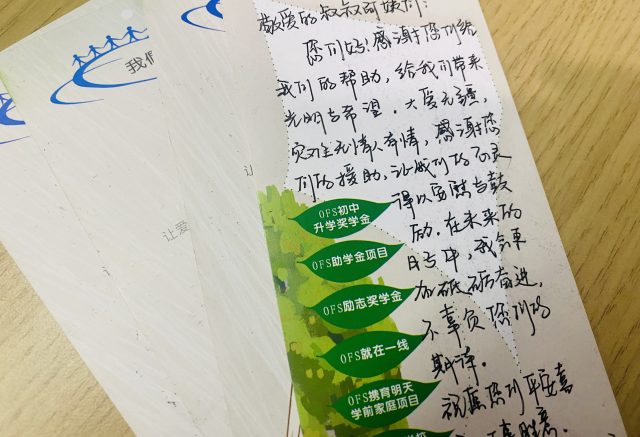 敬爱的叔叔阿姨们:
您们好!感谢您们给
我们的帮助,给我们带来
光明与希望。大爱无疆,
灾难无情人有情,感谢您
们的援助,让我们的心灵
得以安慰与鼓
励。在未来的
日子中,我会更
加砥砺奋进,
不辜负您们的
祝愿您们平安喜
事胜意。
OFS初中
升学奖学金
OFS助学金项目
OFS励志奖学金
OFS就在一线
OFS携育明天
学前家庭项目
我们
让爱
让